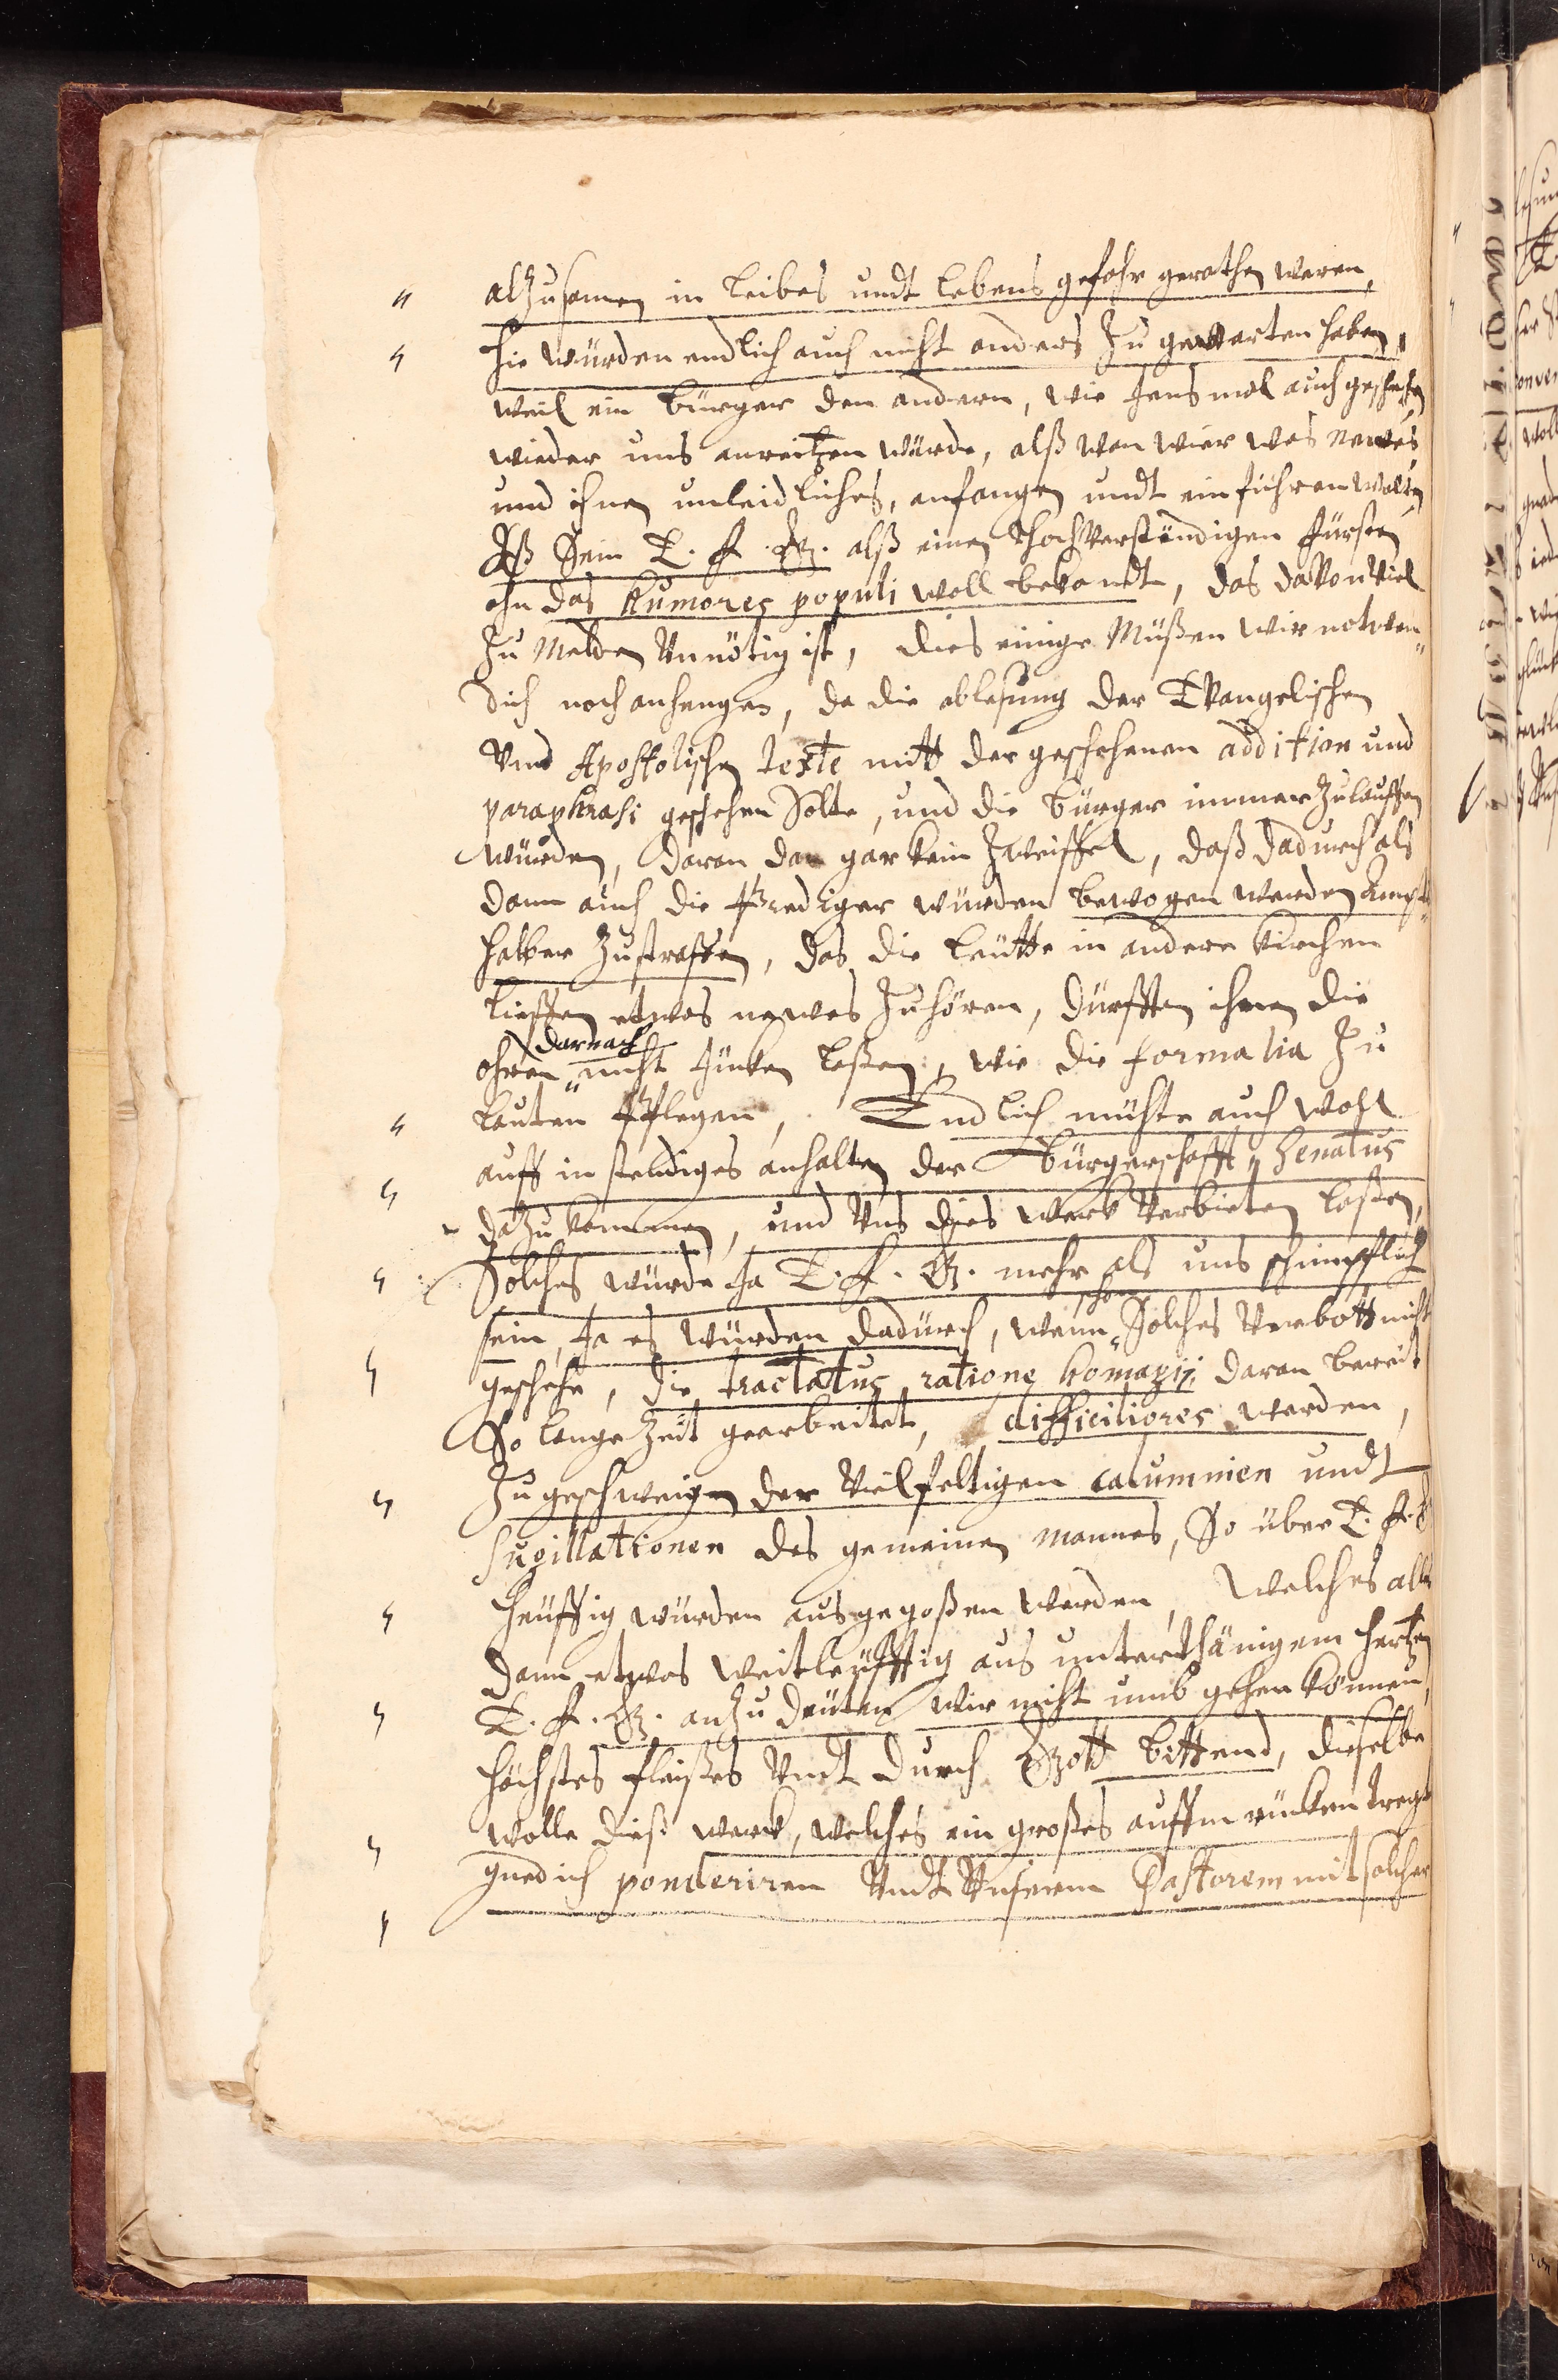 alzusamen in leibes undt lebens gefahr gerathen weren,
Hie würden endlich auch nicht anders zu gewarten haben,
weil ein bürger den andern, wie Jens mal auch geschehen
wieder uns anreitzen würde, alß wan wier was newes
und ihnen unleidliches, anfangen undt einführen wolten
Eß Sein E. F. G. alß einen Hochverstendigen fürsten
ohn das humores populi woll bekandt, das davon viel
zu melden Unnötig ist, dies einige Müßen wir notwen„
dich noch anhengen, da die ablesung der Evangelischen
Und Apostolischen texte mitt der geschehenen addition und
paraphrasi geschehen Solte, und die bürger immer zulauffen
würden, daran dan gar kein zweiffel, daß dadurch als
dann auch die Prediger würden bewogen werden Ampts„
halber zustraffen, das die leütte in andere kirchen
lieffen etwas newes zuhören, dürfften ihnen die
ohren „darnach nicht Jüken laßen, wie die formalia zu
lauten Pflegen, Endlich müste auch wohl
auff instendiges anhalten der bürgerschafft Senatus
dazu kommen, und Uns dies werk verbieten laßen,
Solches würde Ja E. F. G. mehr als uns schimpflich
sein, Ja es würden dadurch, wann „schon Solches verbott nicht
geschehe, die tractatus ratione homagii, daran bereit
So lange zeit gearbeitet, difficiliores werden,
Zugeschweigen der vielfeltigen calumnien undt
sugillationen des gemeinen mannes, So über E. F. G
heüffig würden ausgegoßen werden, welches alles
dann etwas weitleüfftig aus unterthänigem hertzen
E. F. G. anzudeuten wir nicht umb gehen können,
höchstes fleißes Undt durch Gott bittend, dieselbe
wolle dieß werk, welches ein großes auffm rücken tregt
gnedich ponderiren Undt Unserm Pastorem mit solcher